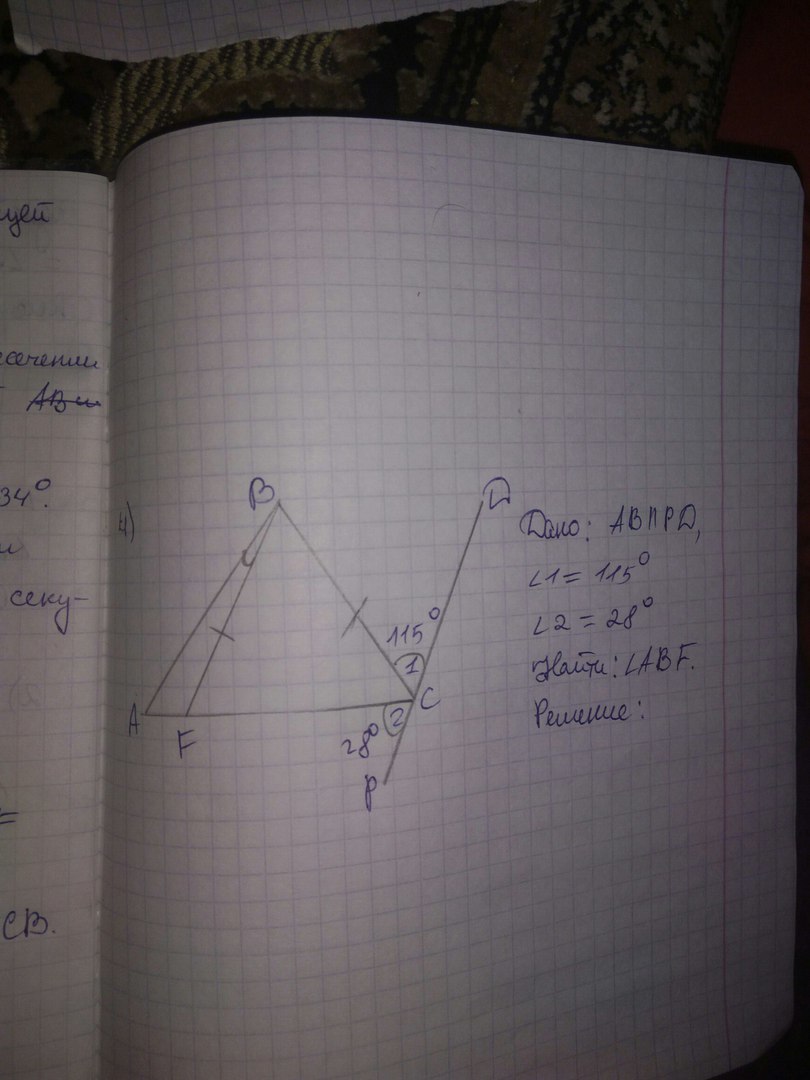 ующей
сечении
AB и
34°.
и
секу-
=
CB.
4)
B
D
115°
1
A
F
C
2
28°
P
Дано: AB∥PD,
∠1 = 115°
∠2 = 28°
Найти: ∠ABF.
Решение: